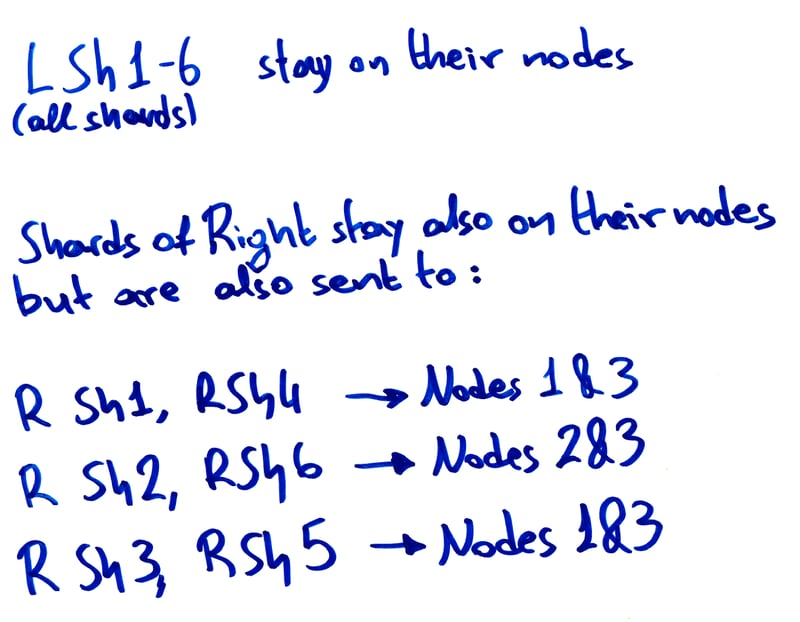 L Sh1-6 stay on their nodes
(all shards)
Shards of Right stay also on their nodes
but are also sent to:
R Sh1, RSh4 → Nodes 1&3
R Sh2, RSh6 → Nodes 2&3
R Sh3, RSh5 → Nodes 1&3